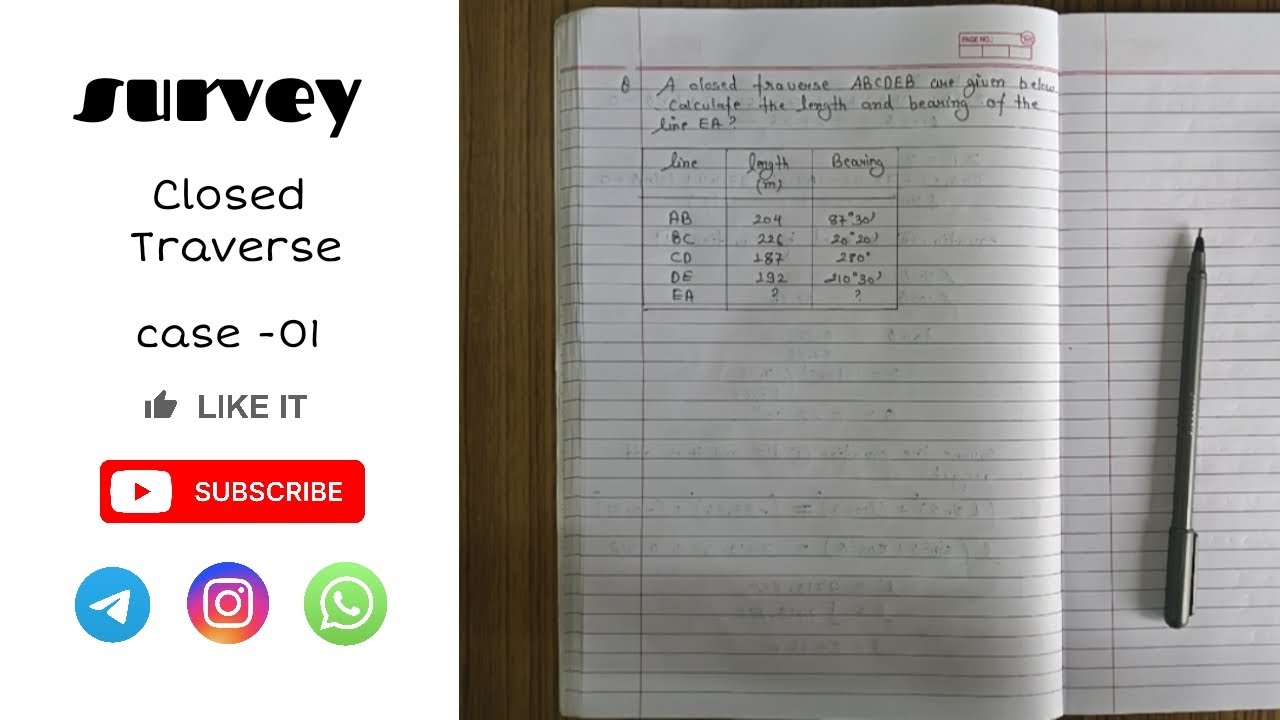 survey
Closed
Traverse
case -01
LIKE IT
SUBSCRIBE
PAGE NO.:
Q A closed traverse ABCDEB are given below
Calculate the length and bearing of the
line EA?
line length Bearing
(m)
AB 204 87°30'
BC 226 20°20'
CD 187 280°
DE 192 210°30'
EA ? ?